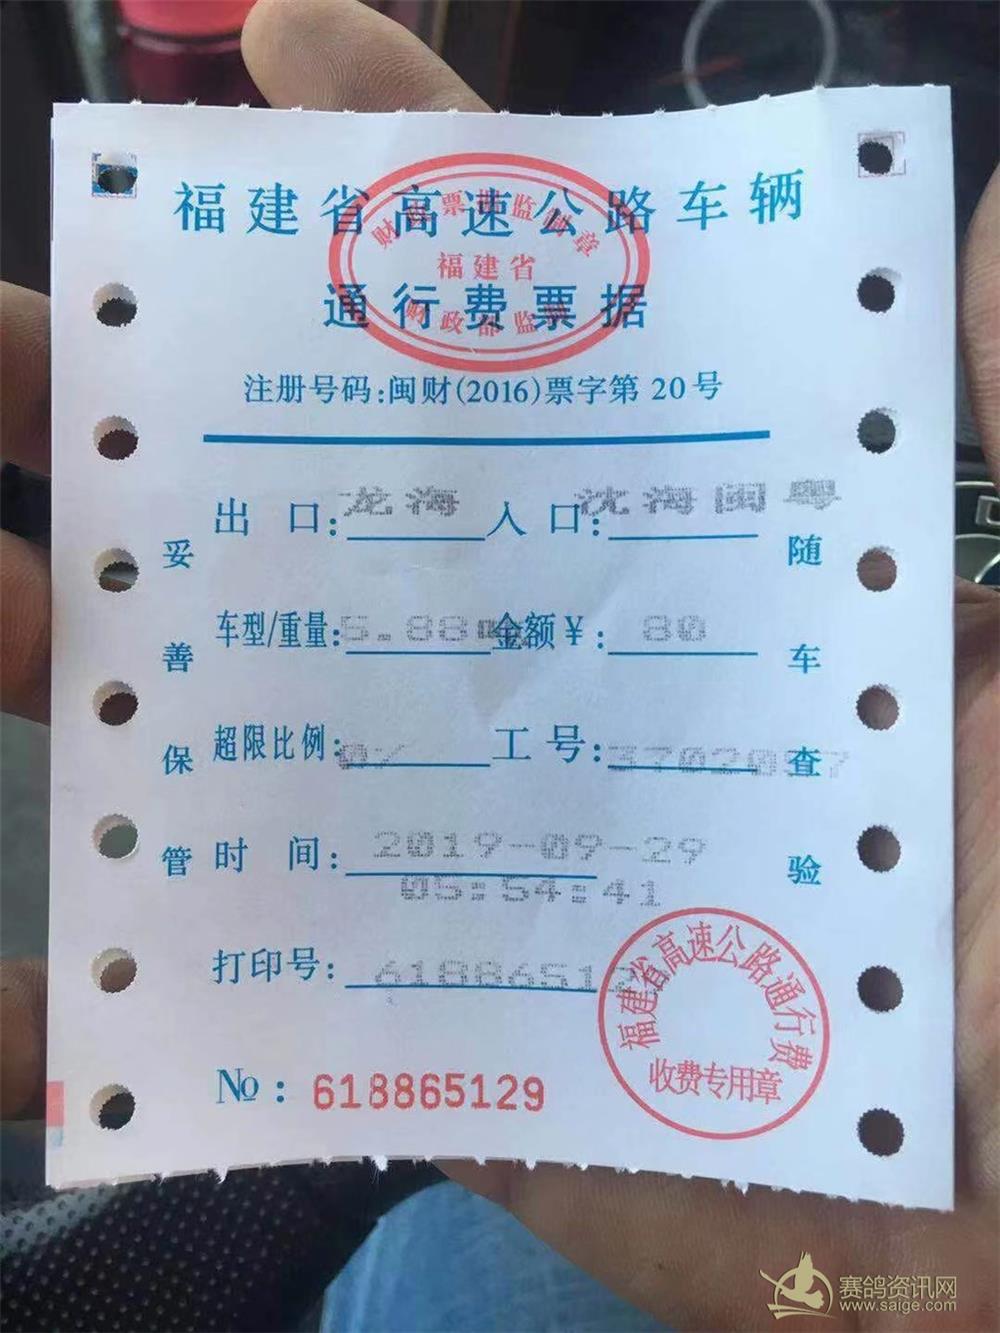 福建省高速公路车辆
通行费票据
福建省
注册号码:闽财(2016)票字第 20 号
出 口: 龙海 入 口: 沈海闽粤
车型/重量: 5.88 金额¥: 80
超限比例: 0% 工号:
时 间: 2019-09-29
05:54:41
打印号: 6188651
№: 618865129
妥善保管
随车查验
福建省高速公路通行费
收费专用章
赛鸽资讯网
www.saige.com